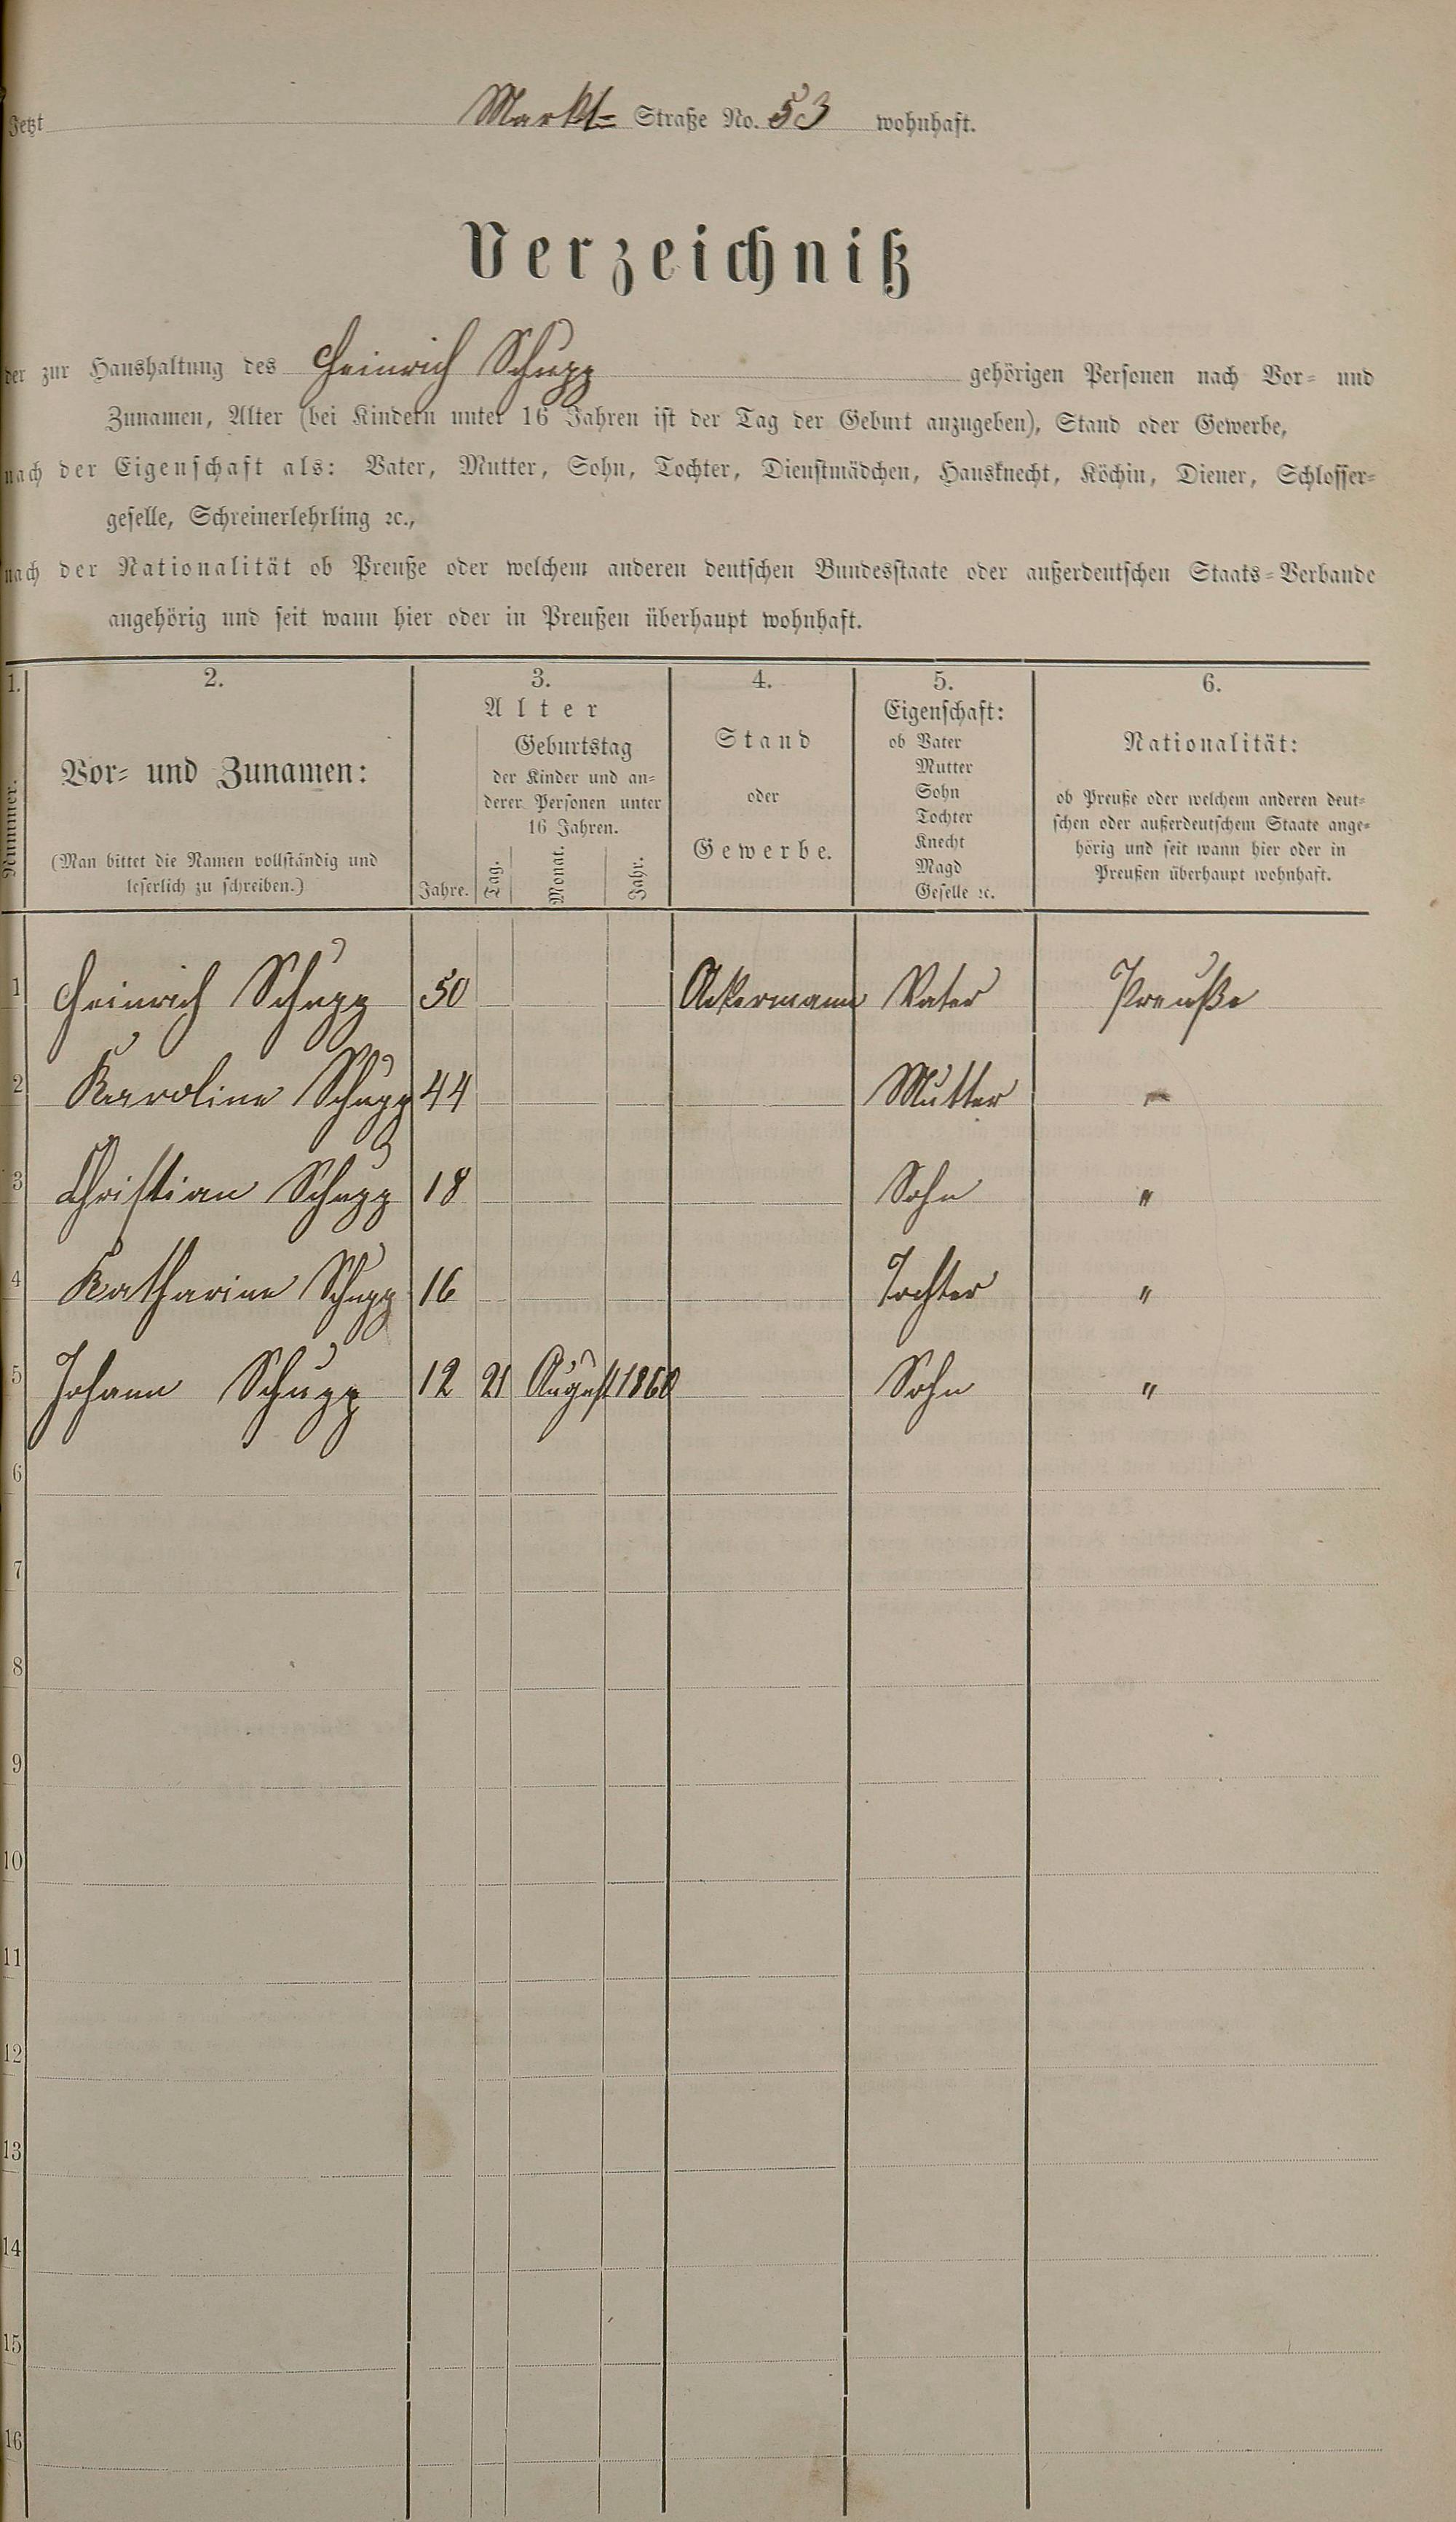 Jetzt Markt- Straße No. 53 wohnhaft.
Verzeichniß
der zur Haushaltung des Heinrich Schupp gehörigen Personen nach Vor- und
Zunamen, Alter (bei Kindern unter 16 Jahren ist der Tag der Geburt anzugeben), Stand oder Gewerbe,
nach der Eigenschaft als: Vater, Mutter, Sohn, Tochter, Dienstmädchen, Hausknecht, Köchin, Diener, Schlosser-
geselle, Schreinerlehrling ꝛc.,
nach der Nationalität ob Preuße oder welchem anderen deutschen Bundesstaate oder außerdeutschen Staats-Verbande
angehörig und seit wann hier oder in Preußen überhaupt wohnhaft.
1.
Nummer.
2.
Vor- und Zunamen:
(Man bittet die Namen vollständig und
leserlich zu schreiben.)
3.
Alter
Jahre.
Geburtstag
der Kinder und an-
derer Personen unter
16 Jahren.
Tag.
Monat.
Jahr.
4.
Stand
oder
Gewerbe.
5.
Eigenschaft:
ob Vater
Mutter
Sohn
Tochter
Knecht
Magd
Geselle ꝛc.
6.
Nationalität:
ob Preuße oder welchem anderen deut-
schen oder außerdeutschem Staate ange-
hörig und seit wann hier oder in
Preußen überhaupt wohnhaft.
1 Heinrich Schupp 50 Ackermann Vater Preuße
2 Karoline Schupp 44 Mutter "
3 Christian Schupp 18 Sohn "
4 Katharine Schupp 16 Tochter "
5 Johann Schupp 12 21 August 1860 Sohn "
6
7
8
9
10
11
12
13
14
15
16